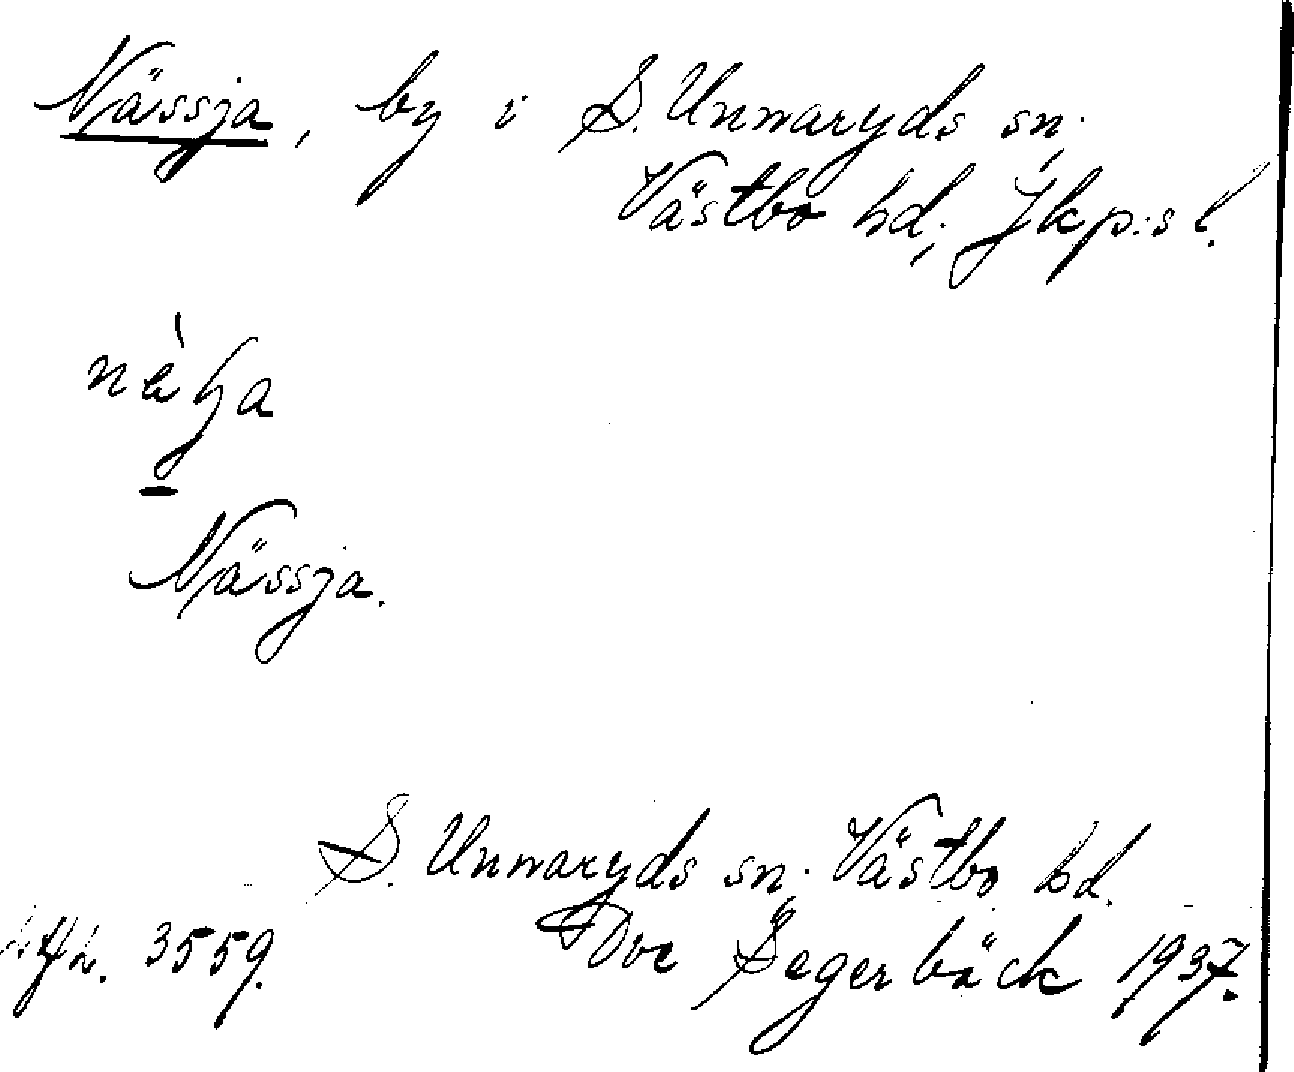 Nässja, by i S. Unnaryds sn.
Västbo hd; Jkp:s l.
Nässja.
S. Unnaryds sn. Västbo hd.
3559. Segerbäck 1937.